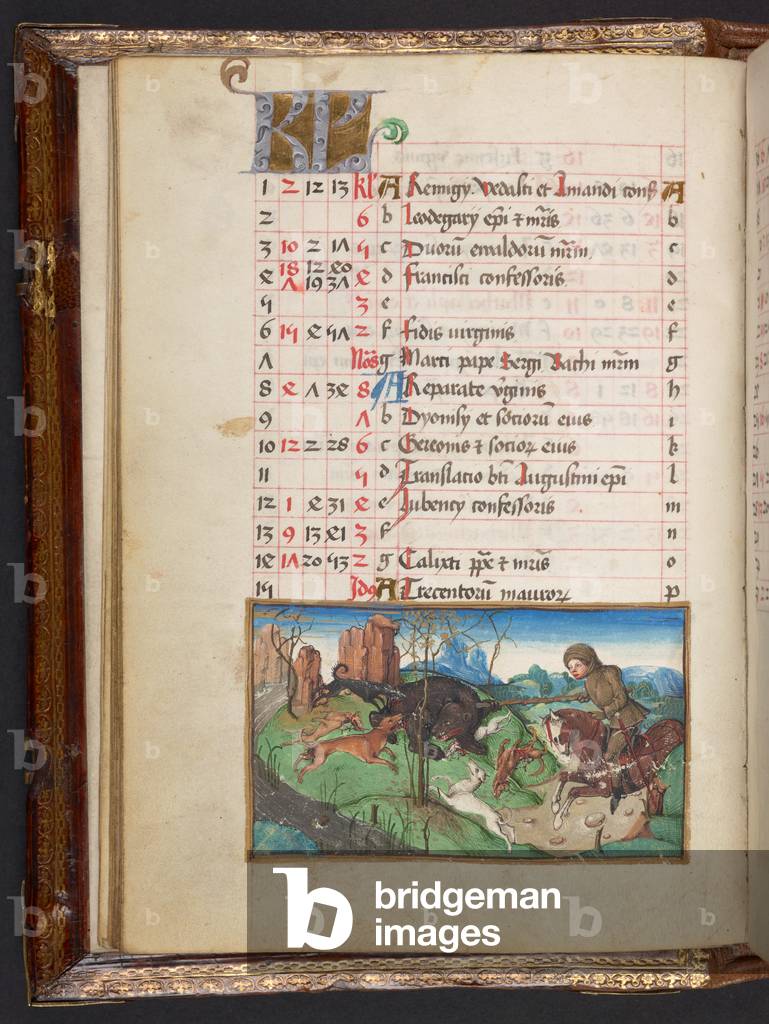 KL
1 2 12 13 kl' A Remigy. Vedasti et Amandi conf A
2 6 b leodegarij epi & mris b
3 10 2 1Λ 4 c Duorū ewaldorū mrm c
18 12 20
4 Λ 19 3Λ 4 d Francisci confessoris. d
5 3 e e
6 15 4 5Λ 2 f Fidis virginis f
Λ Nōs g Marci pape Sergi Bachi mrm g
8 4 Λ 34 8 A Reparate v̄ginis h
9 Λ b Dyonisy et sociorū eius i
10 12 2 28 6 c Gereonis & socior eius k
11 5 d Translatio bti Augustini epi l
12 1 4 31 4 e Iubency confessoris m
13 9 13 41 3 f n
14 1Λ 20 53 2 g Calixti ppe & mris o
15 Id9 A Trecentorū mauror p
b bridgeman
images